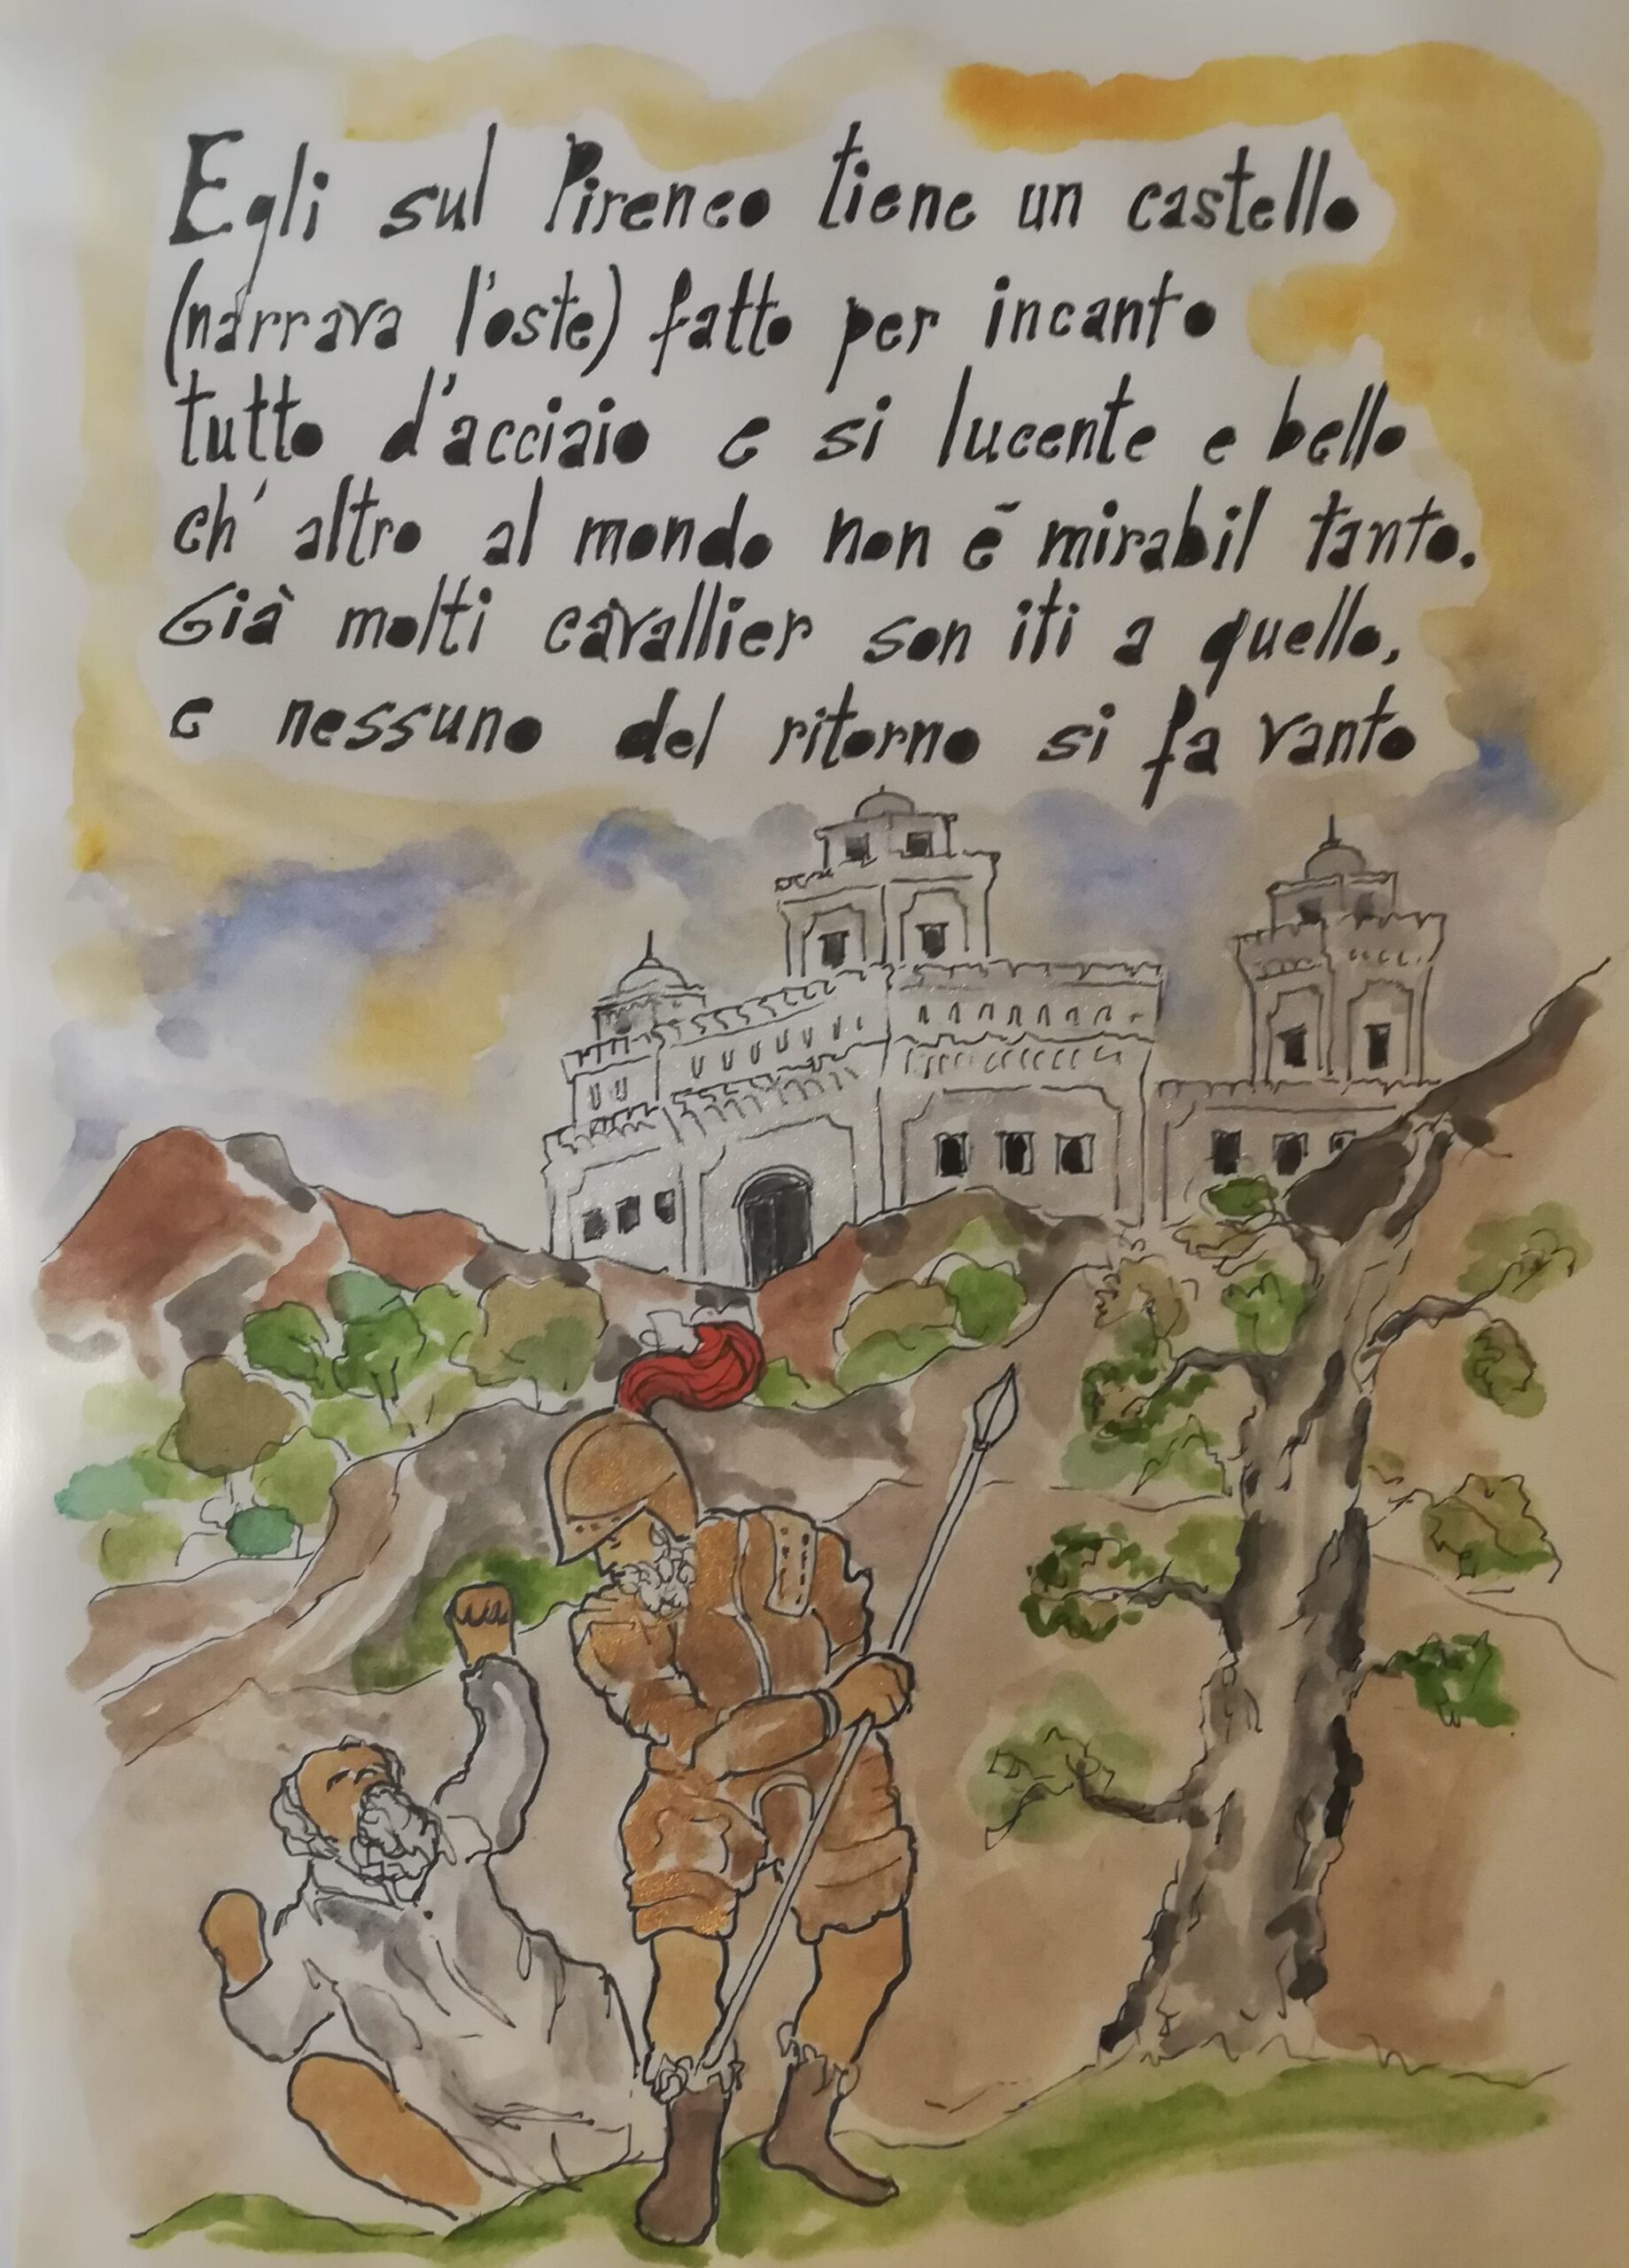 Egli sul Pireneo tiene un castello
(narrava l'oste) fatto per incanto
tutto d'acciaio e si lucente e bello
ch' altro al mondo non é mirabil tanto.
Già molti cavallier son iti a quello,
e nessuno del ritorno si fa vanto